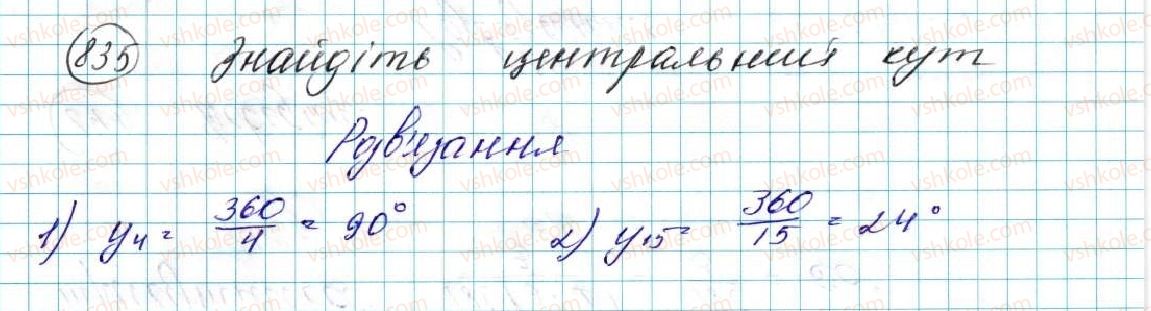 835 Знайдіть центральний кут
Розв'язання
1) y₄ = 360/4 = 90° 2) y₁₅ = 360/15 = 24°